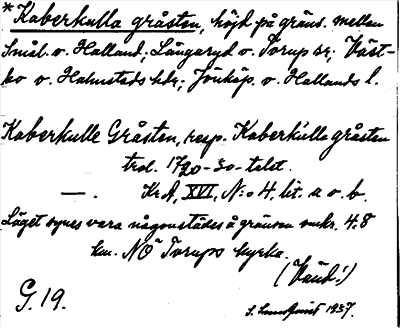 *Kaberkulla gråsten, höjd på gräns. mellan
Smål. o. Halland; Långaryd o. Torup sr; Väst-
bo o. Halmstads hdr; Jönköp. o. Hallands l.
Kaberkulle Gråsten, resp. Kaberkulla gråsten
trol. 1720-30-talet.
—. KrA, XVI, N:o 4, lit. a o. b.
Läget synes vara någonstädes å gränsen omkr. 4,8
km. NO Torups kyrka.
(Vänd!)
G. 19.
S. Lundquist 1937.